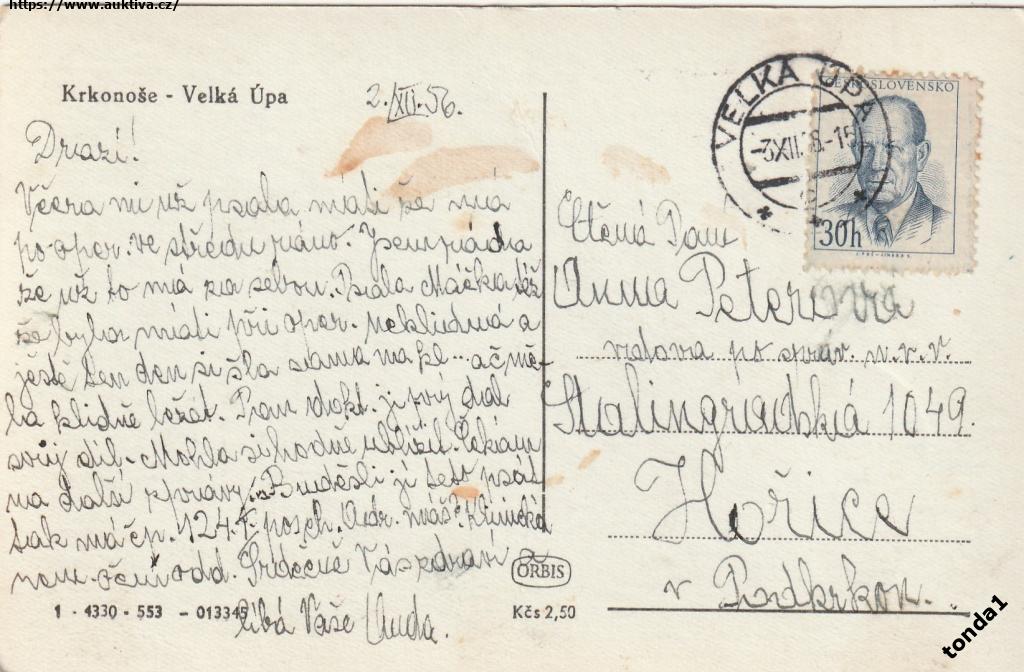 https://www.auktiva.cz/
Krkonoše - Velká Úpa
2./XII.56.
Drazí!
Včera mi už psala máti že má
po oper. ve středu ráno. Jsem ráda
že už to má za sebou. Psala Máčka též
že byla máti při oper. neklidná a
ještě ten den si šla sama na kl... ač mě-
la klidně ležat. Pan dokt. jí prý dal
svůj díl. Mohla si hodně ublížit. Čekám
na další zprávy. Budešli jí teto psát
tak má čp. 124 I. posch. Adr. máš? Klinická
nem. oční odd. Srdečně Vás zdraví
líbá Vaše Anda.
1 - 4330 - 553 - 013345
ORBIS
Kčs 2,50
VELKÁ ÚPA
-3.XII.58.-15
ČESKOSLOVENSKO
30h
Ctěná Paní
Anna Peterova
vdova po správ. v.v.
Stalingradská 1049.
Hořice
v Podkrkon.
tonda1